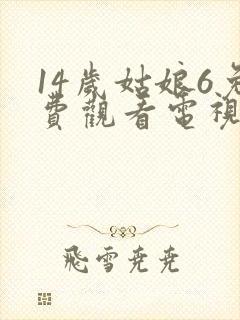 14歲姑娘6免
費觀看電視
飛雪堯堯